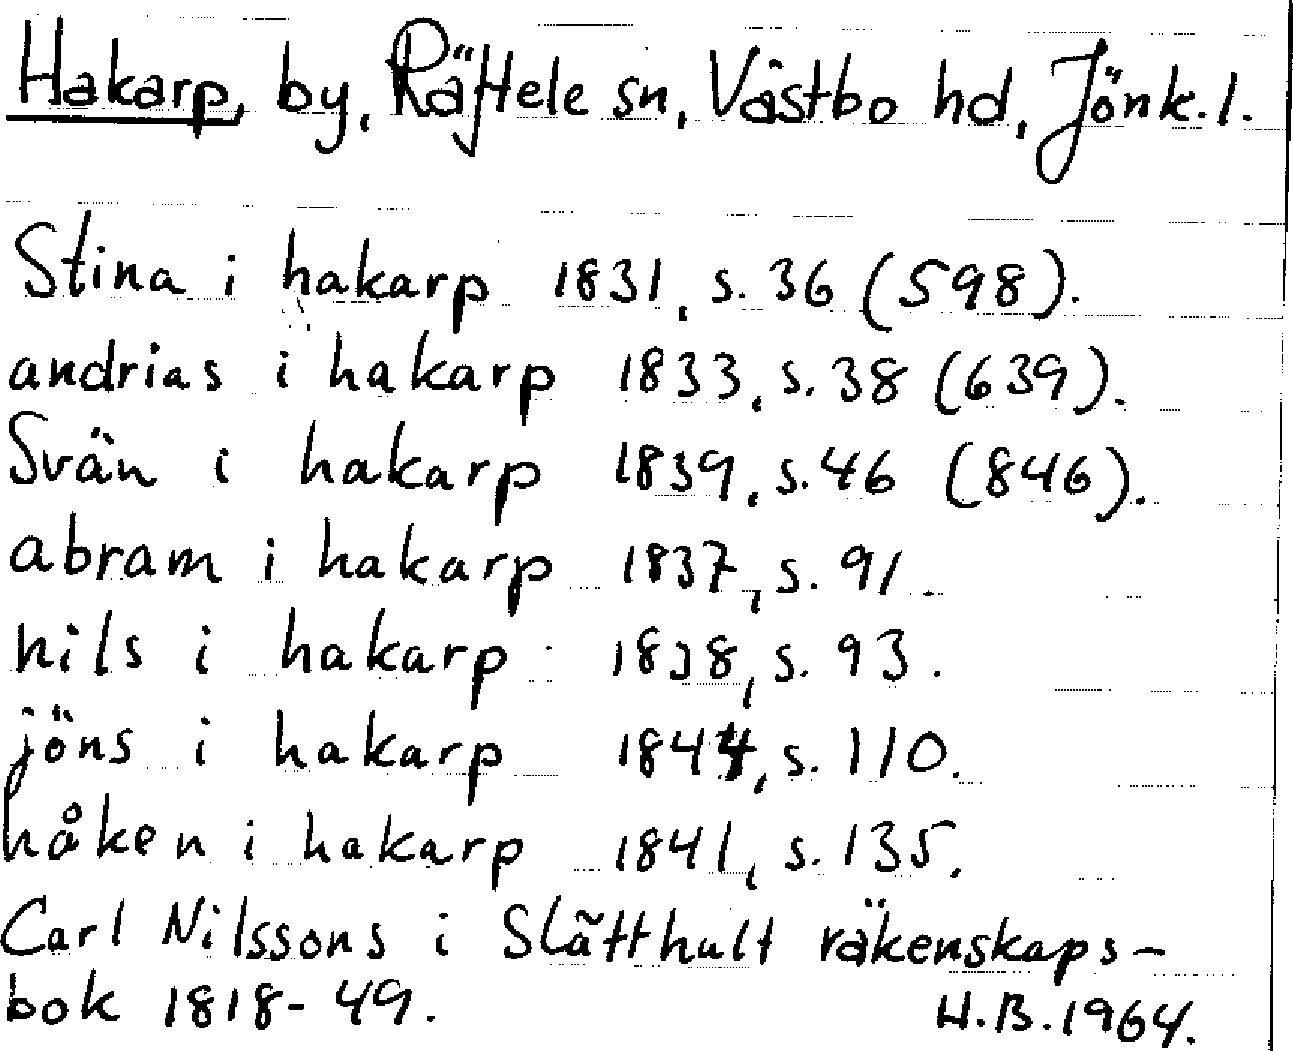 Hakarp, by, Räftele sn, Västbo hd, Jönk. l.
Stina i hakarp 1831, s. 36 (598).
andrias i hakarp 1833, s. 38 (639).
Svän i hakarp 1839, s. 46 (846).
abram i hakarp 1837, s. 91.
nils i hakarp 1838, s. 93.
jöns i hakarp 1844, s. 110.
håken i hakarp 1841, s. 135.
Carl Nilssons i Slätthult räkenskaps-
bok 1818-49. H.B. 1964.